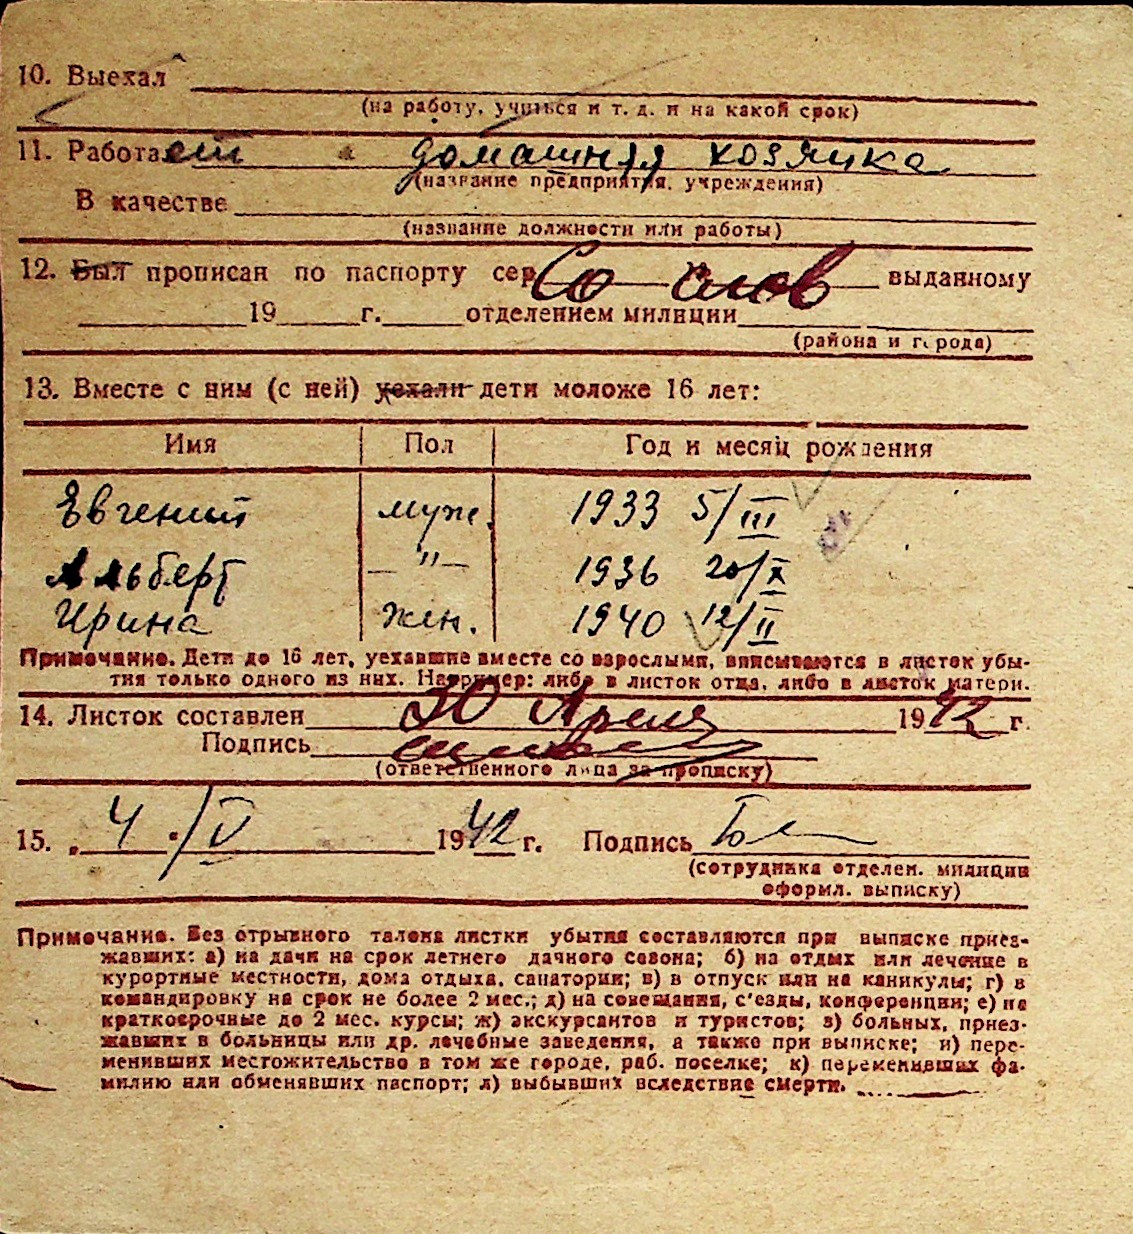 10. Выехал
(на работу, учиться и т. д. и на какой срок)
11. Работает домашняя хозяйка
(название предприятия, учреждения)
В качестве
(название должности или работы)
12. Был прописан по паспорту сер Со слов выданному
19 г. отделением милиции
(района и города)
13. Вместе с ним (с ней) уехали дети моложе 16 лет:
Имя Пол Год и месяц рождения
Евгений муж. 1933 5/III
Альберт —"— 1936 20/X
Ирина жен. 1940 12/II
Примечание. Дети до 16 лет, уехавшие вместе со взрослыми, вписываются в листок убы-
тия только одного из них. Например: либо в листок отца, либо в листок матери.
14. Листок составлен 30 Апреля 1942 г.
Подпись
(ответственного лица за прописку)
15. „4 "/V 1942 г. Подпись
(сотрудника отделен. милиции
оформл. выписку)
Примечание. Без отрывного талона листки убытия составляются при выписке приез-
жавших: а) на дачи на срок летнего дачного сезона; б) на отдых или лечение в
курортные местности, дома отдыха, санатории; в) в отпуск или на каникулы; г) в
командировку на срок не более 2 мес.; д) на совещания, с'езды, конференции; е) на
краткосрочные до 2 мес. курсы; ж) экскурсантов и туристов; з) больных, приез-
жавших в больницы или др. лечебные заведения, а также при выписке; и) пере-
менивших местожительство в том же городе, раб. поселке; к) переменивших фа-
милию или обменявших паспорт; л) выбывших вследствие смерти.